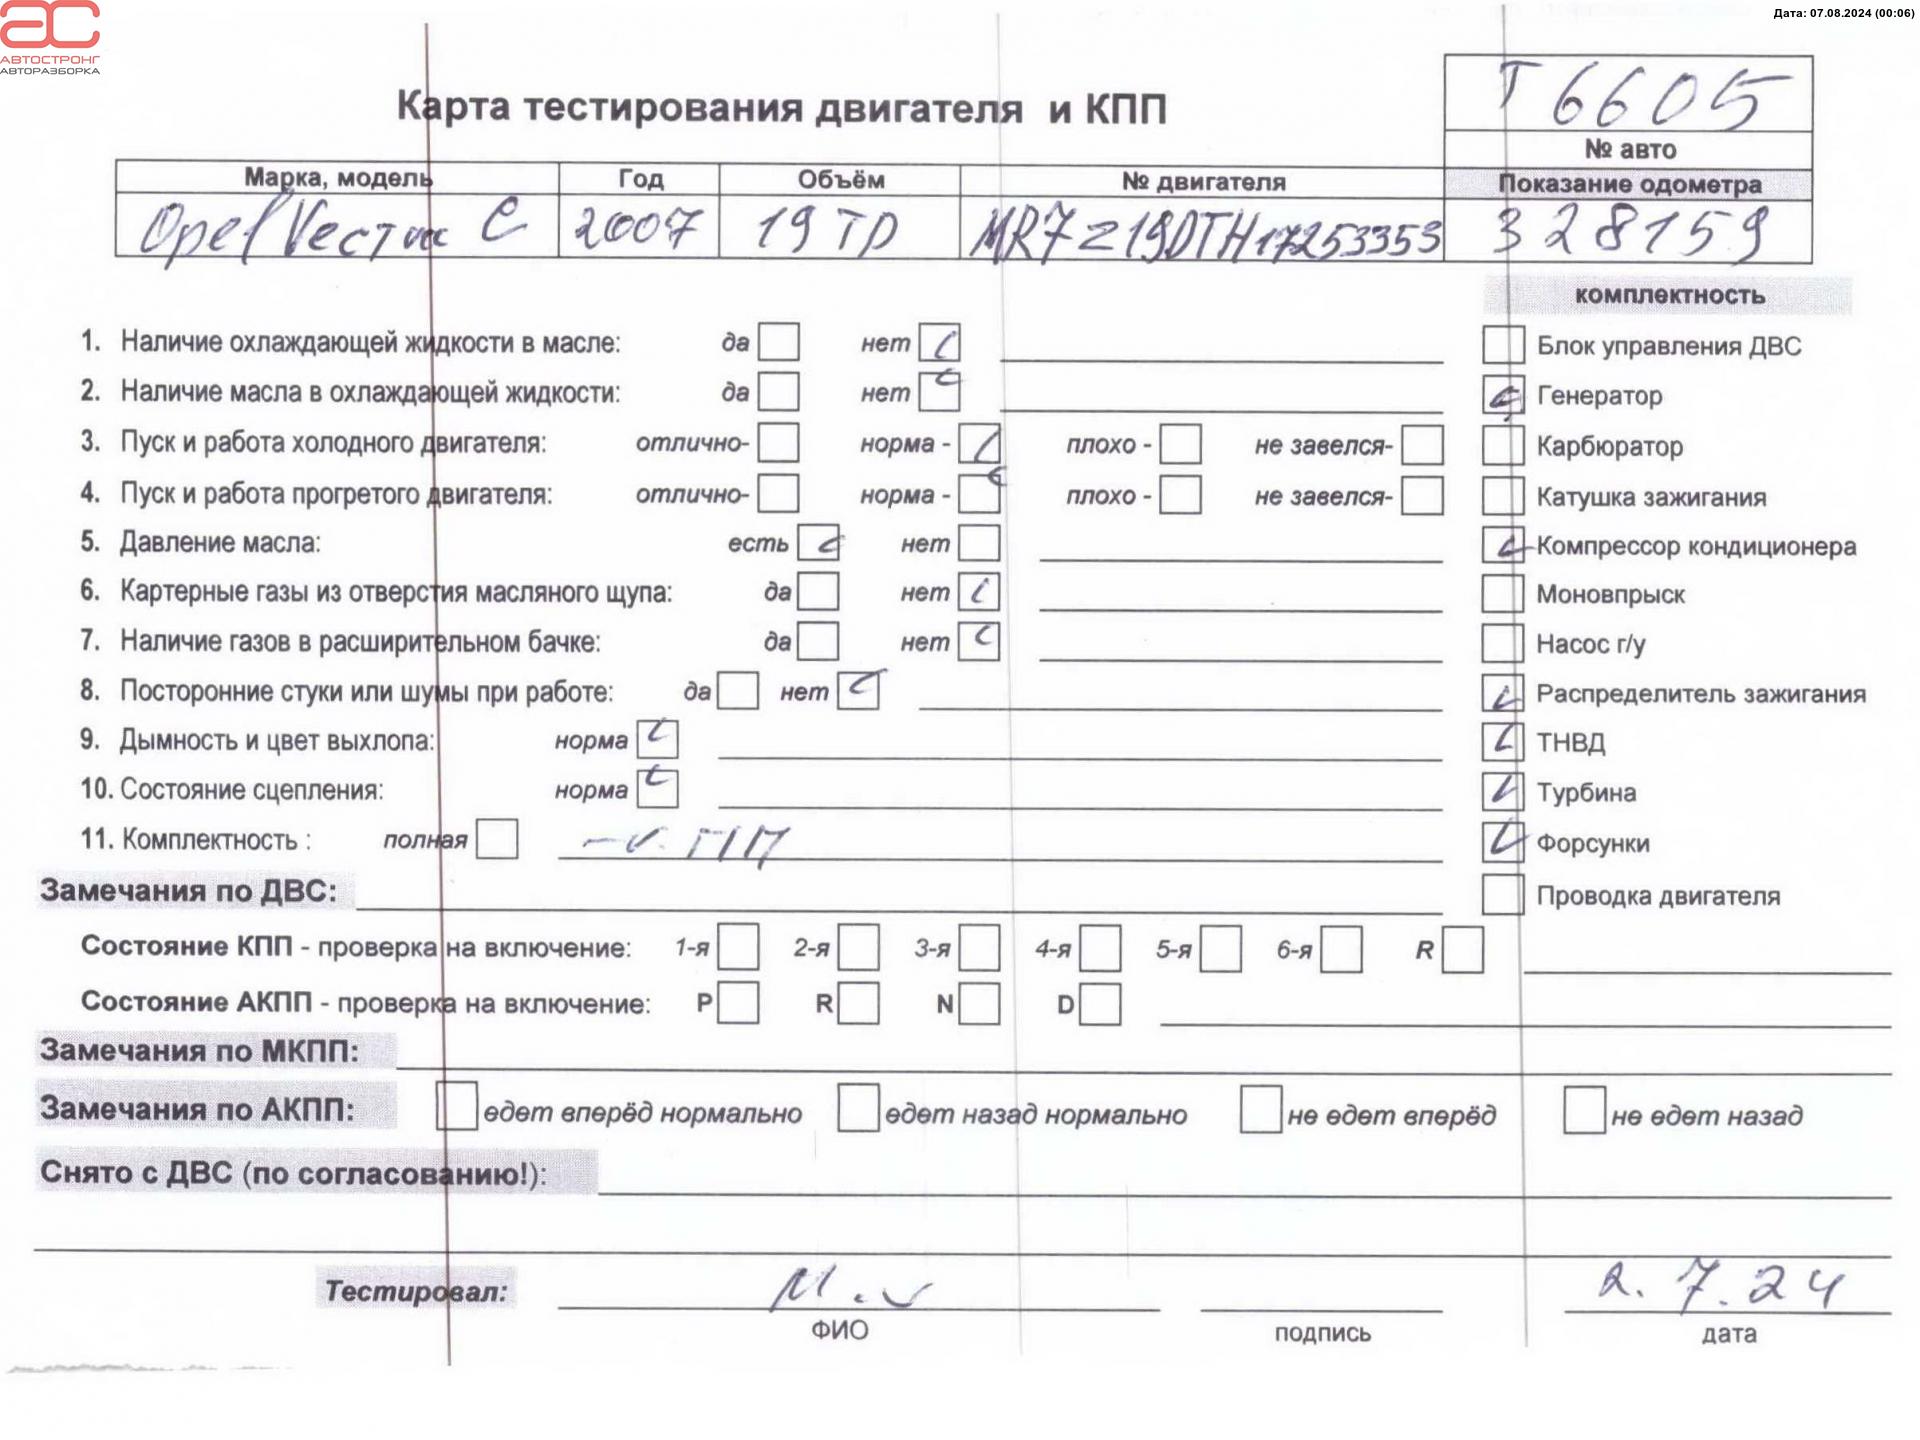 АС
АВТОСТРОНГ
АВТОРАЗБОРКА
Дата: 07.08.2024 (00:06)
Карта тестирования двигателя и КПП
Т 6605
№ авто
Марка, модель Год Объём № двигателя Показание одометра
Opel Vectra C 2007 19 TD MR7Z19DTH17253353 328159
комплектность
1. Наличие охлаждающей жидкости в масле: да нет
Блок управления ДВС
2. Наличие масла в охлаждающей жидкости: да нет
Генератор
3. Пуск и работа холодного двигателя: отлично- норма - плохо - не завелся-
Карбюратор
4. Пуск и работа прогретого двигателя: отлично- норма - плохо - не завелся-
Катушка зажигания
5. Давление масла: есть нет
Компрессор кондиционера
6. Картерные газы из отверстия масляного щупа: да нет
Моновпрыск
7. Наличие газов в расширительном бачке: да нет
Насос г/у
8. Посторонние стуки или шумы при работе: да нет
Распределитель зажигания
9. Дымность и цвет выхлопа: норма
ТНВД
10. Состояние сцепления: норма
Турбина
11. Комплектность : полная
Форсунки
Замечания по ДВС:
Проводка двигателя
Состояние КПП - проверка на включение: 1-я 2-я 3-я 4-я 5-я 6-я R
Состояние АКПП - проверка на включение: P R N D
Замечания по МКПП:
Замечания по АКПП: едет вперёд нормально едет назад нормально не едет вперёд не едет назад
Снято с ДВС (по согласованию!):
Тестировал: 2.7.24
ФИО подпись дата